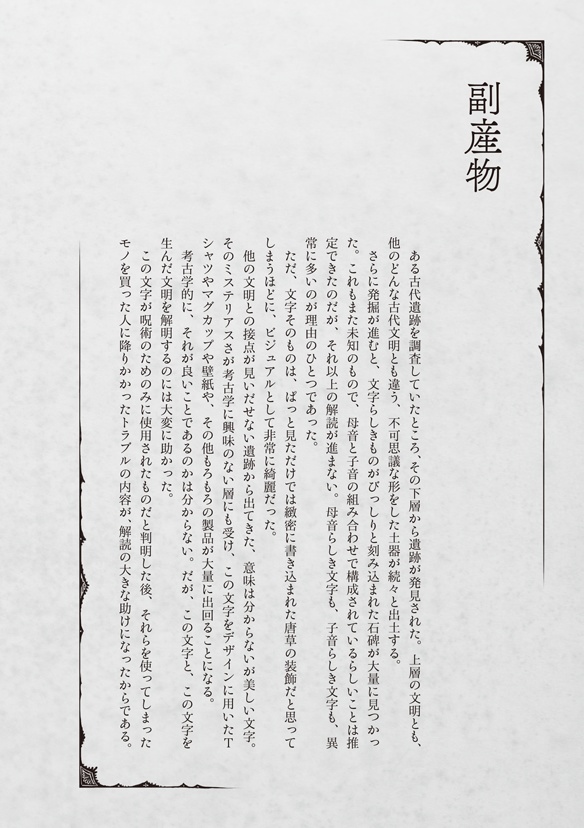 副産物
ある古代遺跡を調査していたところ、その下層から遺跡が発見された。上層の文明とも、
他のどんな古代文明とも違う、不可思議な形をした土器が続々と出土する。
さらに発掘が進むと、文字らしきものがびっしりと刻み込まれた石碑が大量に見つかっ
た。これもまた未知のもので、母音と子音の組み合わせで構成されているらしいことは推
定できたのだが、それ以上の解読が進まない。母音らしき文字も、子音らしき文字も、異
常に多いのが理由のひとつであった。
ただ、文字そのものは、ぱっと見ただけでは緻密に書き込まれた唐草の装飾だと思って
しまうほどに、ビジュアルとして非常に綺麗だった。
他の文明との接点が見いだせない遺跡から出てきた、意味は分からないが美しい文字。
そのミステリアスさが考古学に興味のない層にも受け、この文字をデザインに用いたT
シャツやマグカップや壁紙や、その他もろもろの製品が大量に出回ることになる。
考古学的に、それが良いことであるのかは分からない。だが、この文字と、この文字を
生んだ文明を解明するのには大変に助かった。
この文字が呪術のためのみに使用されたものだと判明した後、それらを使ってしまった
モノを買った人に降りかかったトラブルの内容が、解読の大きな助けになったからである。